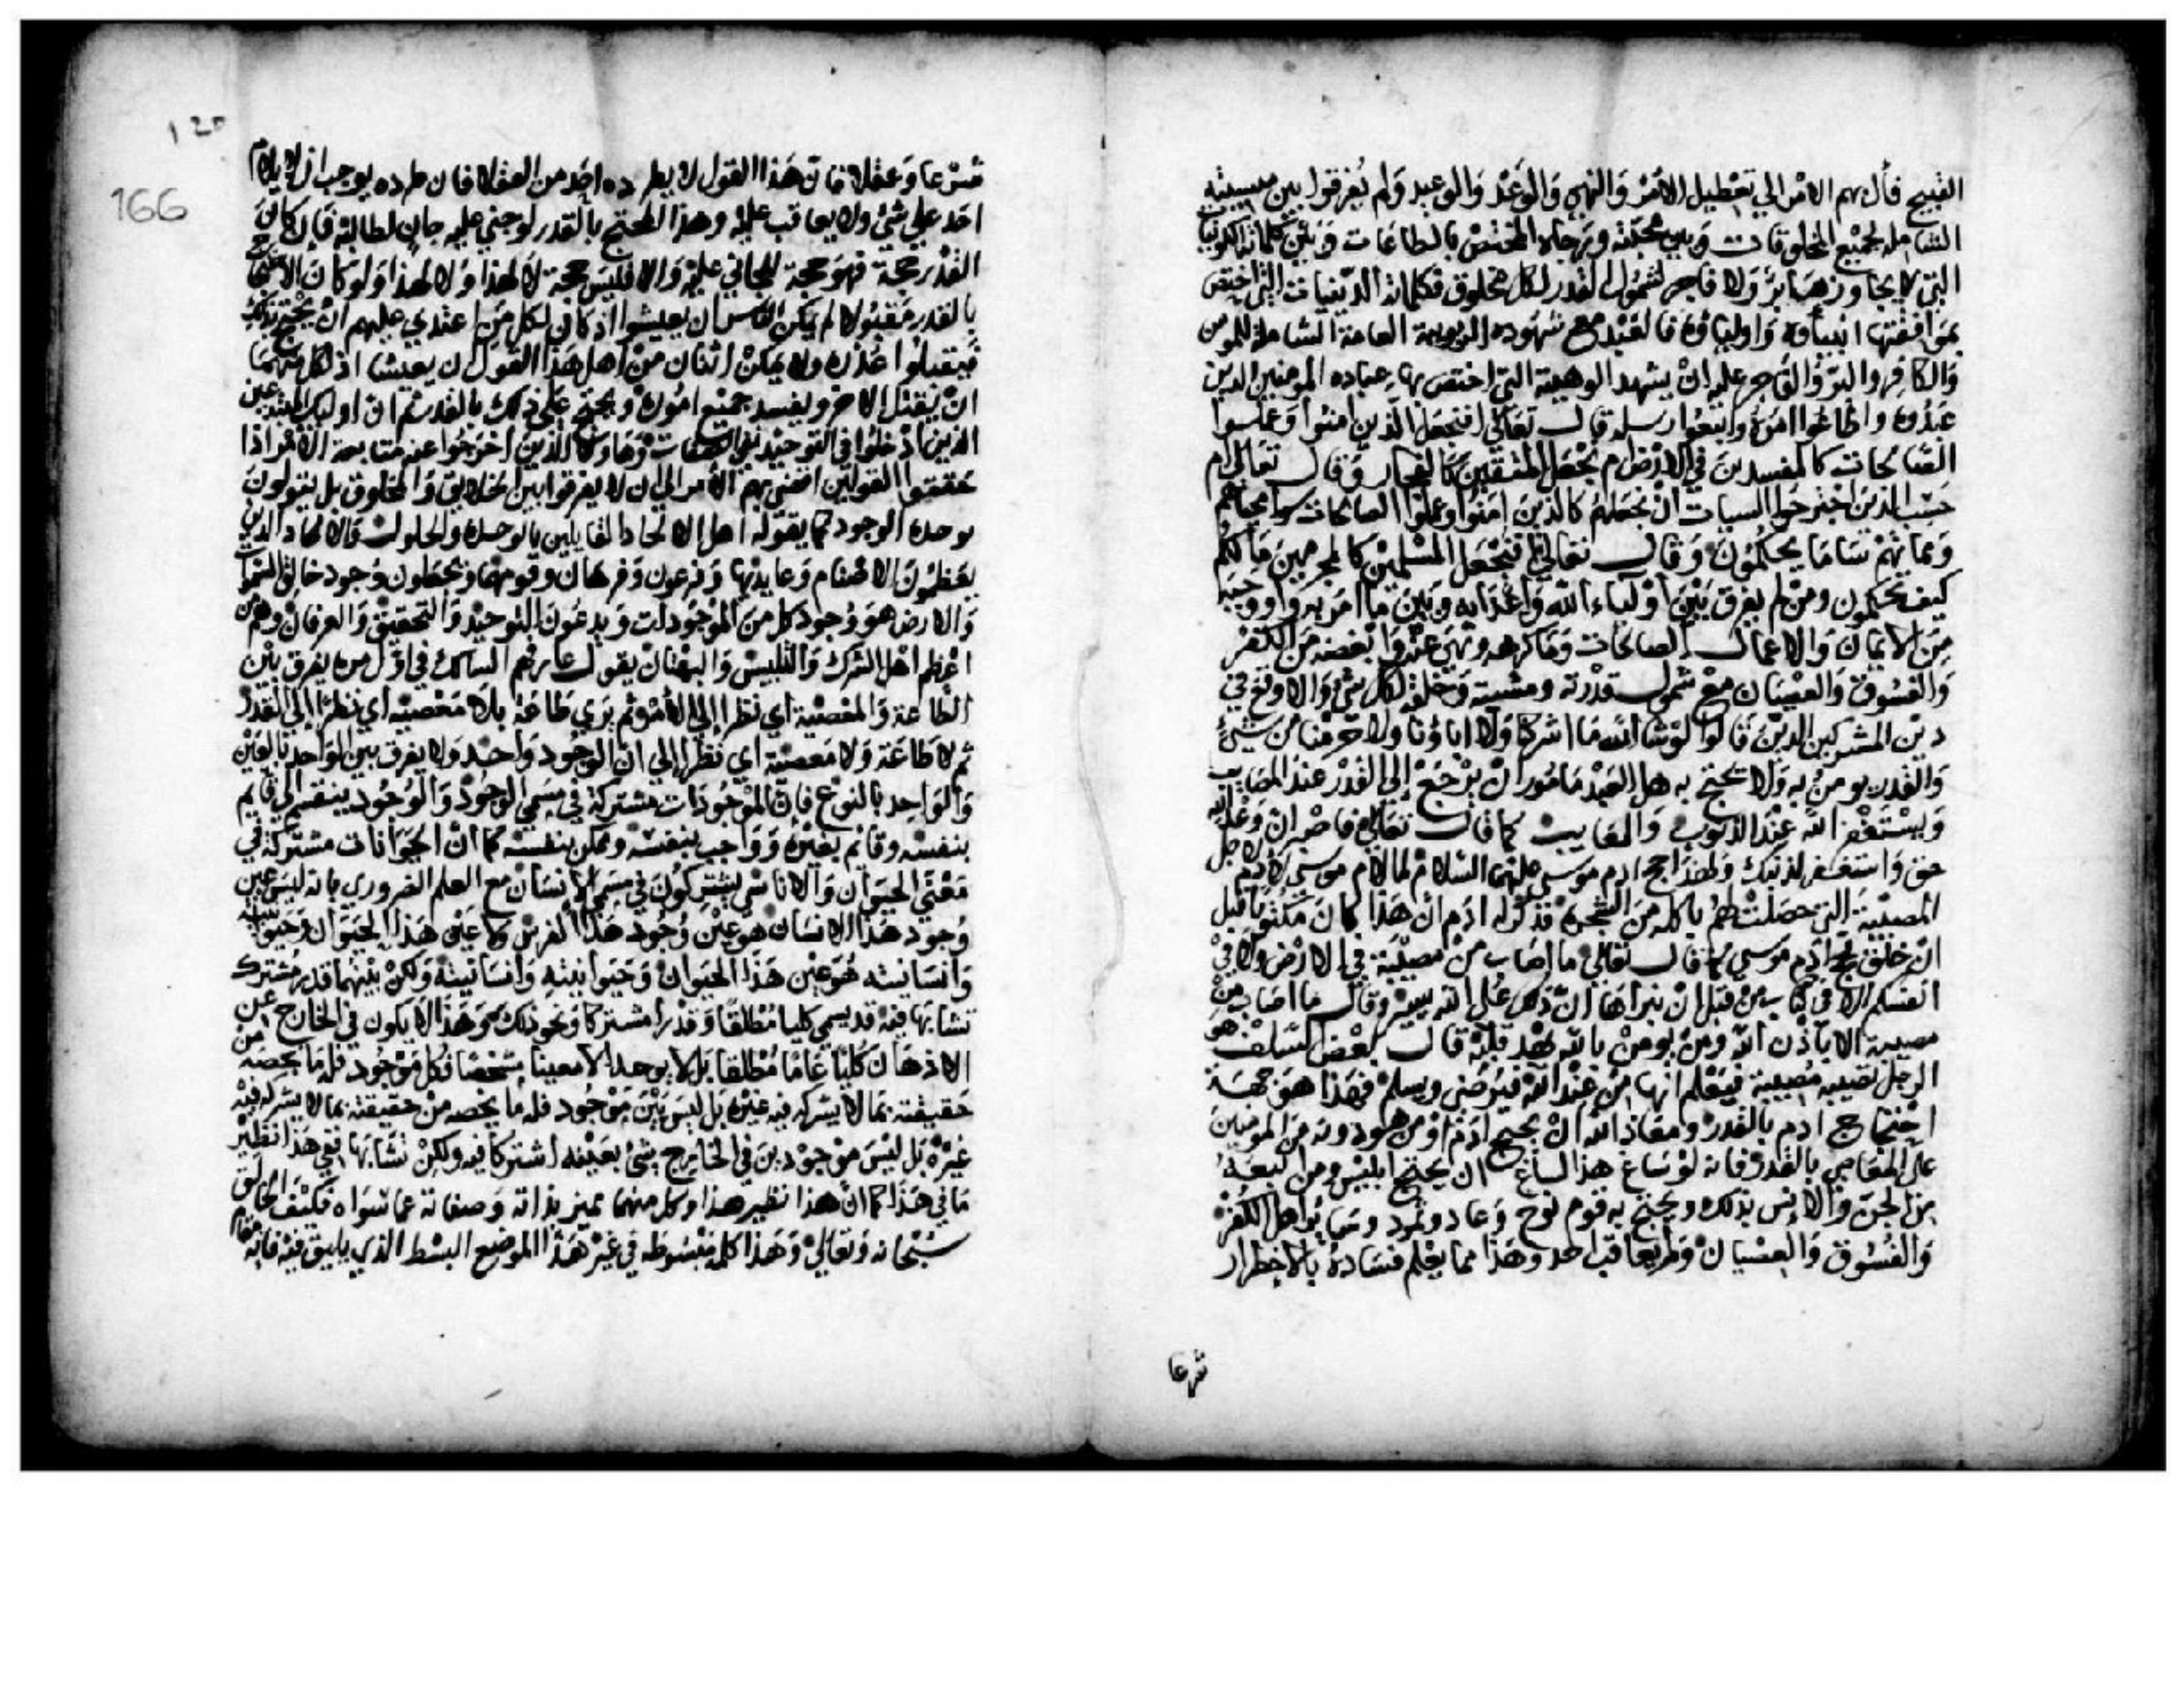 القبيح فآل بهم الامر الي تعطيل الامر والنهي والوعد والوعيد ولم يفرقوا بين مشيئته
الشاملة لجميع المخلوقات وبين محبته ورضاه المختص بالطاعات وبين كلماته الكونيات
التي لا يجاوزهن بر ولا فاجر لشمول القدر لكل مخلوق وكلماته الدينيات التي اختص
بموافقتها انبياؤه واولياؤه فالعبد مع شهوده الربوبية العامة الشاملة للمومن
والكافر والبر والفاجر عليه ان يشهد الوهيته التي اختص بها عباده المومنين الذين
عبدوه واطاعوا امره واتبعوا رسله قال تعالى افنجعل الذين امنوا وعملوا
الصالحات كالمفسدين في الارض ام نجعل المتقين كالفجار وقال تعالى ام
حسب الذين اجترحوا السيات ان نجعلهم كالذين امنوا وعملوا الصالحات سوا محياهم
ومماتهم سا ما يحكمون وقال تعالى افنجعل المسلمين كالمجرمين مالكم
كيف تحكمون ومن لم يفرق بين اولياء الله واعدايه وبين ما امر به واوجبه
من الايمان والاعمال الصالحات وما كرهه ونهي عنه وابغضه من الكفر
والفسوق والعصيان مع شمول قدرته ومشيته وخلقه لكل شي والا وقع في
دين المشركين الذين قالوا لو شا الله ما اشركنا ولا اباؤنا ولا حرمنا من شيئ
والقدر يومن به ولا يحتج به هل العبد مامور ان يرجع إلى القدر عند المصايب
ويستغفر الله عند الذنوب والمعايب كما قال تعالى فاصبر ان وعد الله
حق واستغفر لذنبك ولهذا حج ادم موسي عليهما السلام لما لام موسى لادم لاجل
المصيبة التي حصلت لهم باكله من الشجرة فذكر له ادم ان هذا كان مكتوبا قبل
ان خلق فحج ادم موسي كما قال تعالى ما اصاب من مصيبة في الارض ولا في
انفسكم الا في كتاب من قبل ان نبراها ان ذلك على الله يسير وقال ما اصاب من
مصيبة الا باذن الله ومن يومن بالله يهد قلبه قال بعض السلف هو
الرجل تصيبه مصيبة فيعلم انها من عند الله فيرضى ويسلم فهذا هو جهة
احتجاج ادم بالقدر ومعاذ الله ان يحتج ادم او من هو دونه من المومنين
على المعاصي بالقدر فانه لو ساغ هذا لساغ ان يحتج ابليس ومن اتبعه
من الجن والانس بذلك ويحتج به قوم نوح وعاد وثمود وساير اهل الكفر
والفسوق والعصيان ولم يعاقب احد وهذا مما يعلم فساده بالاضطرار
شرعا
120
166
شرعا وعقلا فان هذا القول لا يطرده احد من العقلا فان طرده يوجب ان لا يلام
احد علي شي ولا يعاقب عليه وهذا المحتج بالقدر لو جني عليه جان لطالبه فان كان
القدر حجة فهو حجة للجاني عليه والا فليس حجة لا لهذا ولا لهذا ولو كان الاحتجاج
بالقدر مقبولا لم يكن الناس ان يعيشوا اذ كان لكل من اعتدي عليهم ان يحتج بذلك
فيقبلوا عذره ولا يمكن اثنان من اهل هذا القول ان يعيشا اذ لكل منهما
ان يقتل الاخر ويفسد جميع اموره ويحتج على ذلك بالقدر ثم ان اوليك المبتدعين
الذين ادخلوا في التوحيد نفي الصفات وهاولا الذين اخرجوا عنه متابعة الامر اذا
حققوا القولين افضي بهم الامر الي ان لا يفرقوا بين الخالق والمخلوق بل يقولون
بوحدة الوجود كما يقوله اهل الالحاد القايلين بالوحدة والحلول والاتحاد الذين
يعظمون الاصنام وعابديها وفرعون وهامان وقومهما ويجعلون وجود خالق السموات
والارض هو وجود كل من الموجودات ويدعون التوحيد والتحقيق والعرفان وهم من
اعظم اهل الشرك والتلبيس والبهتان يقول عارفهم السالك في اول امره يفرق بين
الطاعة والمعصية اي نظرا إلى الأمر ثم يري طاعة بلا معصية اي نظرا إلى القدر
ثم لا طاعة ولا معصية اي نظرا إلى ان الوجود واحد ولا يفرق بين الواحد بالعين
والواحد بالنوع فان الموجودات مشتركة في مسمي الوجود والوجود ينقسم الي قايم
بنفسه وقائم بغيره وواجب بنفسه وممكن بنفسه كما ان الحيوانات مشتركة في
معنى الحيوان والاناسي يشتركون في مسمي الانسان مع العلم الضروري بانه ليس عين
وجود هذا الانسان هو عين وجود هذا الفرس ولا عين هذا الحيوان وحيوانيته
وانسانيته هو عين هذا الحيوان وحيوانيته وانسانيته ولكن بينهما قدر مشترك
تشابها فيه قد يسمي كليا مطلقا وقدرا مشتركا ونحو ذلك وهذا لا يكون في الخارج عن
الاذهان كليا عاما مطلقا بل لا يوجد الا معينا مشخصا فكل موجود فله ما يخصه من
حقيقته مما لا يشركه فيه غيره بل ليس بين موجود فله ما يخصه من حقيقته مما لا يشركه فيه
غيره بل ليس موجودين في الخارج شي بعينه اشتركا فيه ولكن تشابها ففي هذا نظير
ما في هذا كما ان هذا نظير هذا وكل منهما متميز بذاته وصفاته عما سواه فكيف الخالق
سبحانه وتعالى وهذا كله مبسوط في غير هذا الموضع البسط الذي يليق فيه فانه مقام